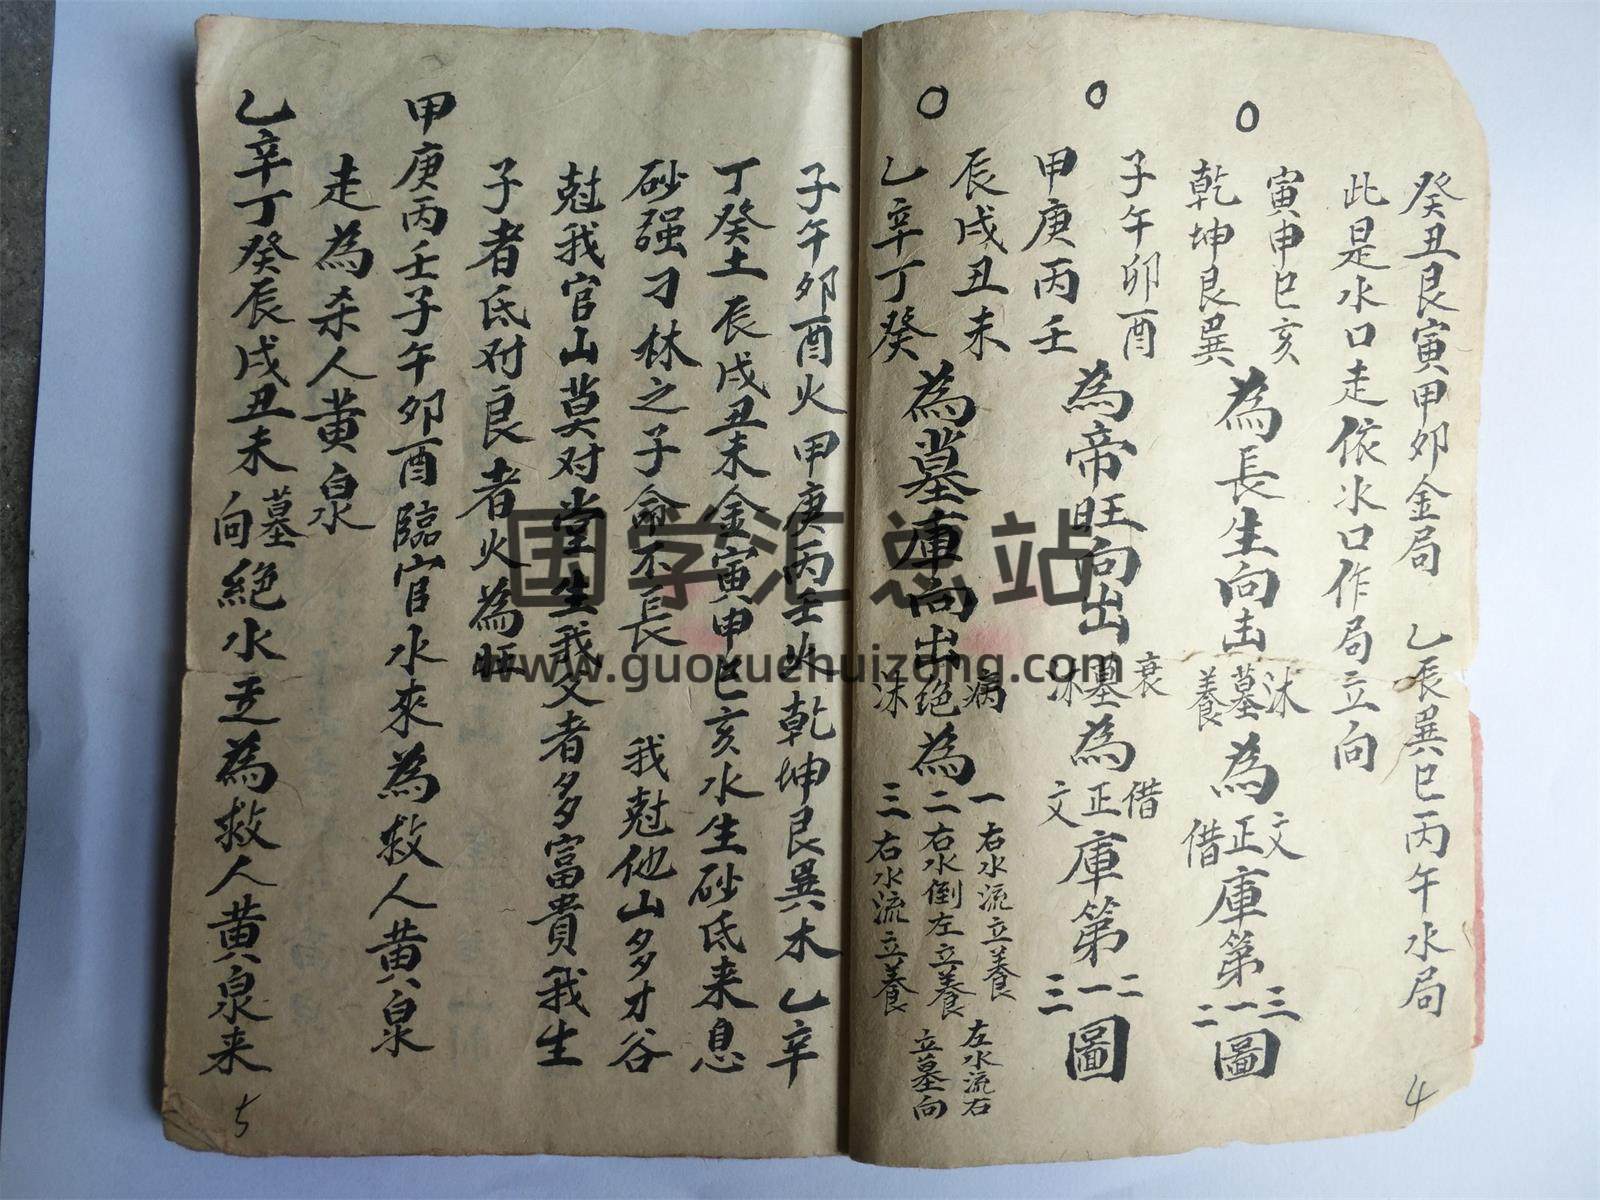 癸丑艮寅甲卯金局 乙辰巽巳丙午水局
此是水口走依水口作局立向
○
寅申巳亥
乾坤艮巽
為長生向击
沐
墓
養
為
文
正
借
庫第
三
一
二
圖
○
子午卯酉
甲庚丙壬
為帝旺向出
衰
墓
沐
為
借
正
文
庫第
二
一
三
圖
○
辰戌丑未
乙辛丁癸
為墓庫向出
病
绝
沐
為
一右水流立養
二右水倒左立養
三右水流立養
左水流右
立墓向
4
子午卯酉火甲庚丙壬火乾坤艮巽木乙辛
丁癸土辰戌丑未金寅申巳亥水生砂氐来息
砂强刁林之子命不長 我尅他山多才谷
尅我官山莫对堂生我父者多富貴我生
子者氐对良者火為旺
甲庚丙壬子午卯酉臨官水來為救人黄泉
走為杀人黄泉
乙辛丁癸辰戌丑未
墓
向
絕水走為救人黄泉来
5
国学汇总站
www.guoxuehuizong.com